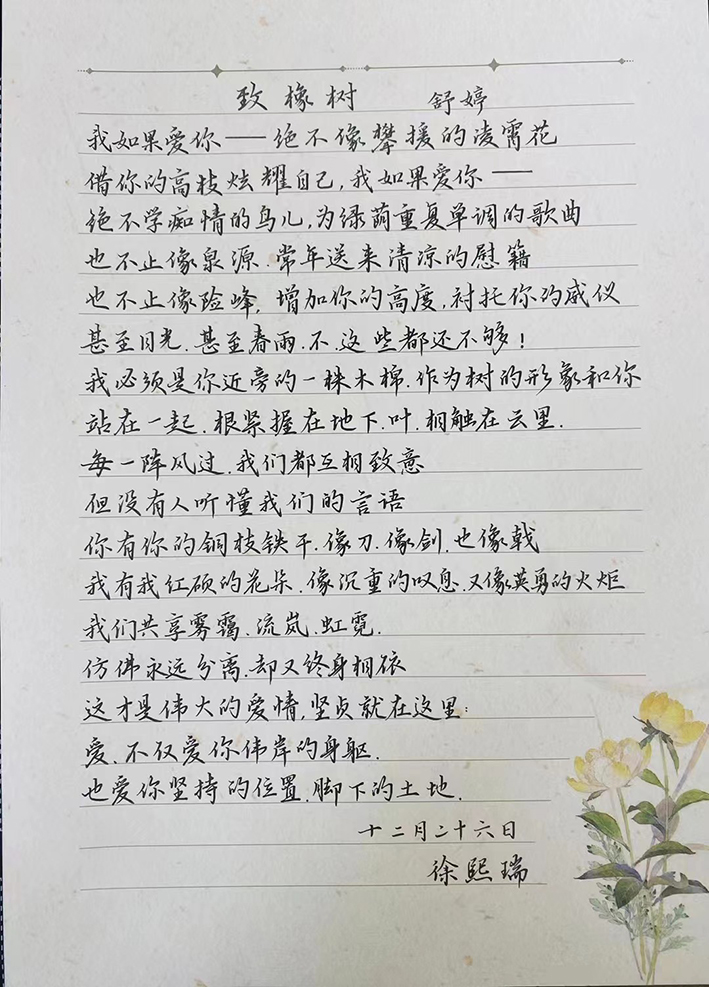 致橡树 舒婷
我如果爱你——绝不像攀援的凌霄花
借你的高枝炫耀自己，我如果爱你——
绝不学痴情的鸟儿，为绿荫重复单调的歌曲
也不止像泉源.常年送来清凉的慰籍
也不止像险峰，增加你的高度，衬托你的威仪
甚至日光.甚至春雨.不.这些都还不够！
我必须是你近旁的一株木棉.作为树的形象和你
站在一起.根紧握在地下.叶.相触在云里.
每一阵风过.我们都互相致意
但没有人听懂我们的言语
你有你的铜枝铁干.像刀.像剑.也像戟
我有我红硕的花朵.像沉重的叹息.又像英勇的火炬
我们共享雾霭.流岚.虹霓.
仿佛永远分离.却又终身相依
这才是伟大的爱情，坚贞就在这里：
爱.不仅爱你伟岸的身躯.
也爱你坚持的位置.脚下的土地.
十二月二十六日
徐熙瑞